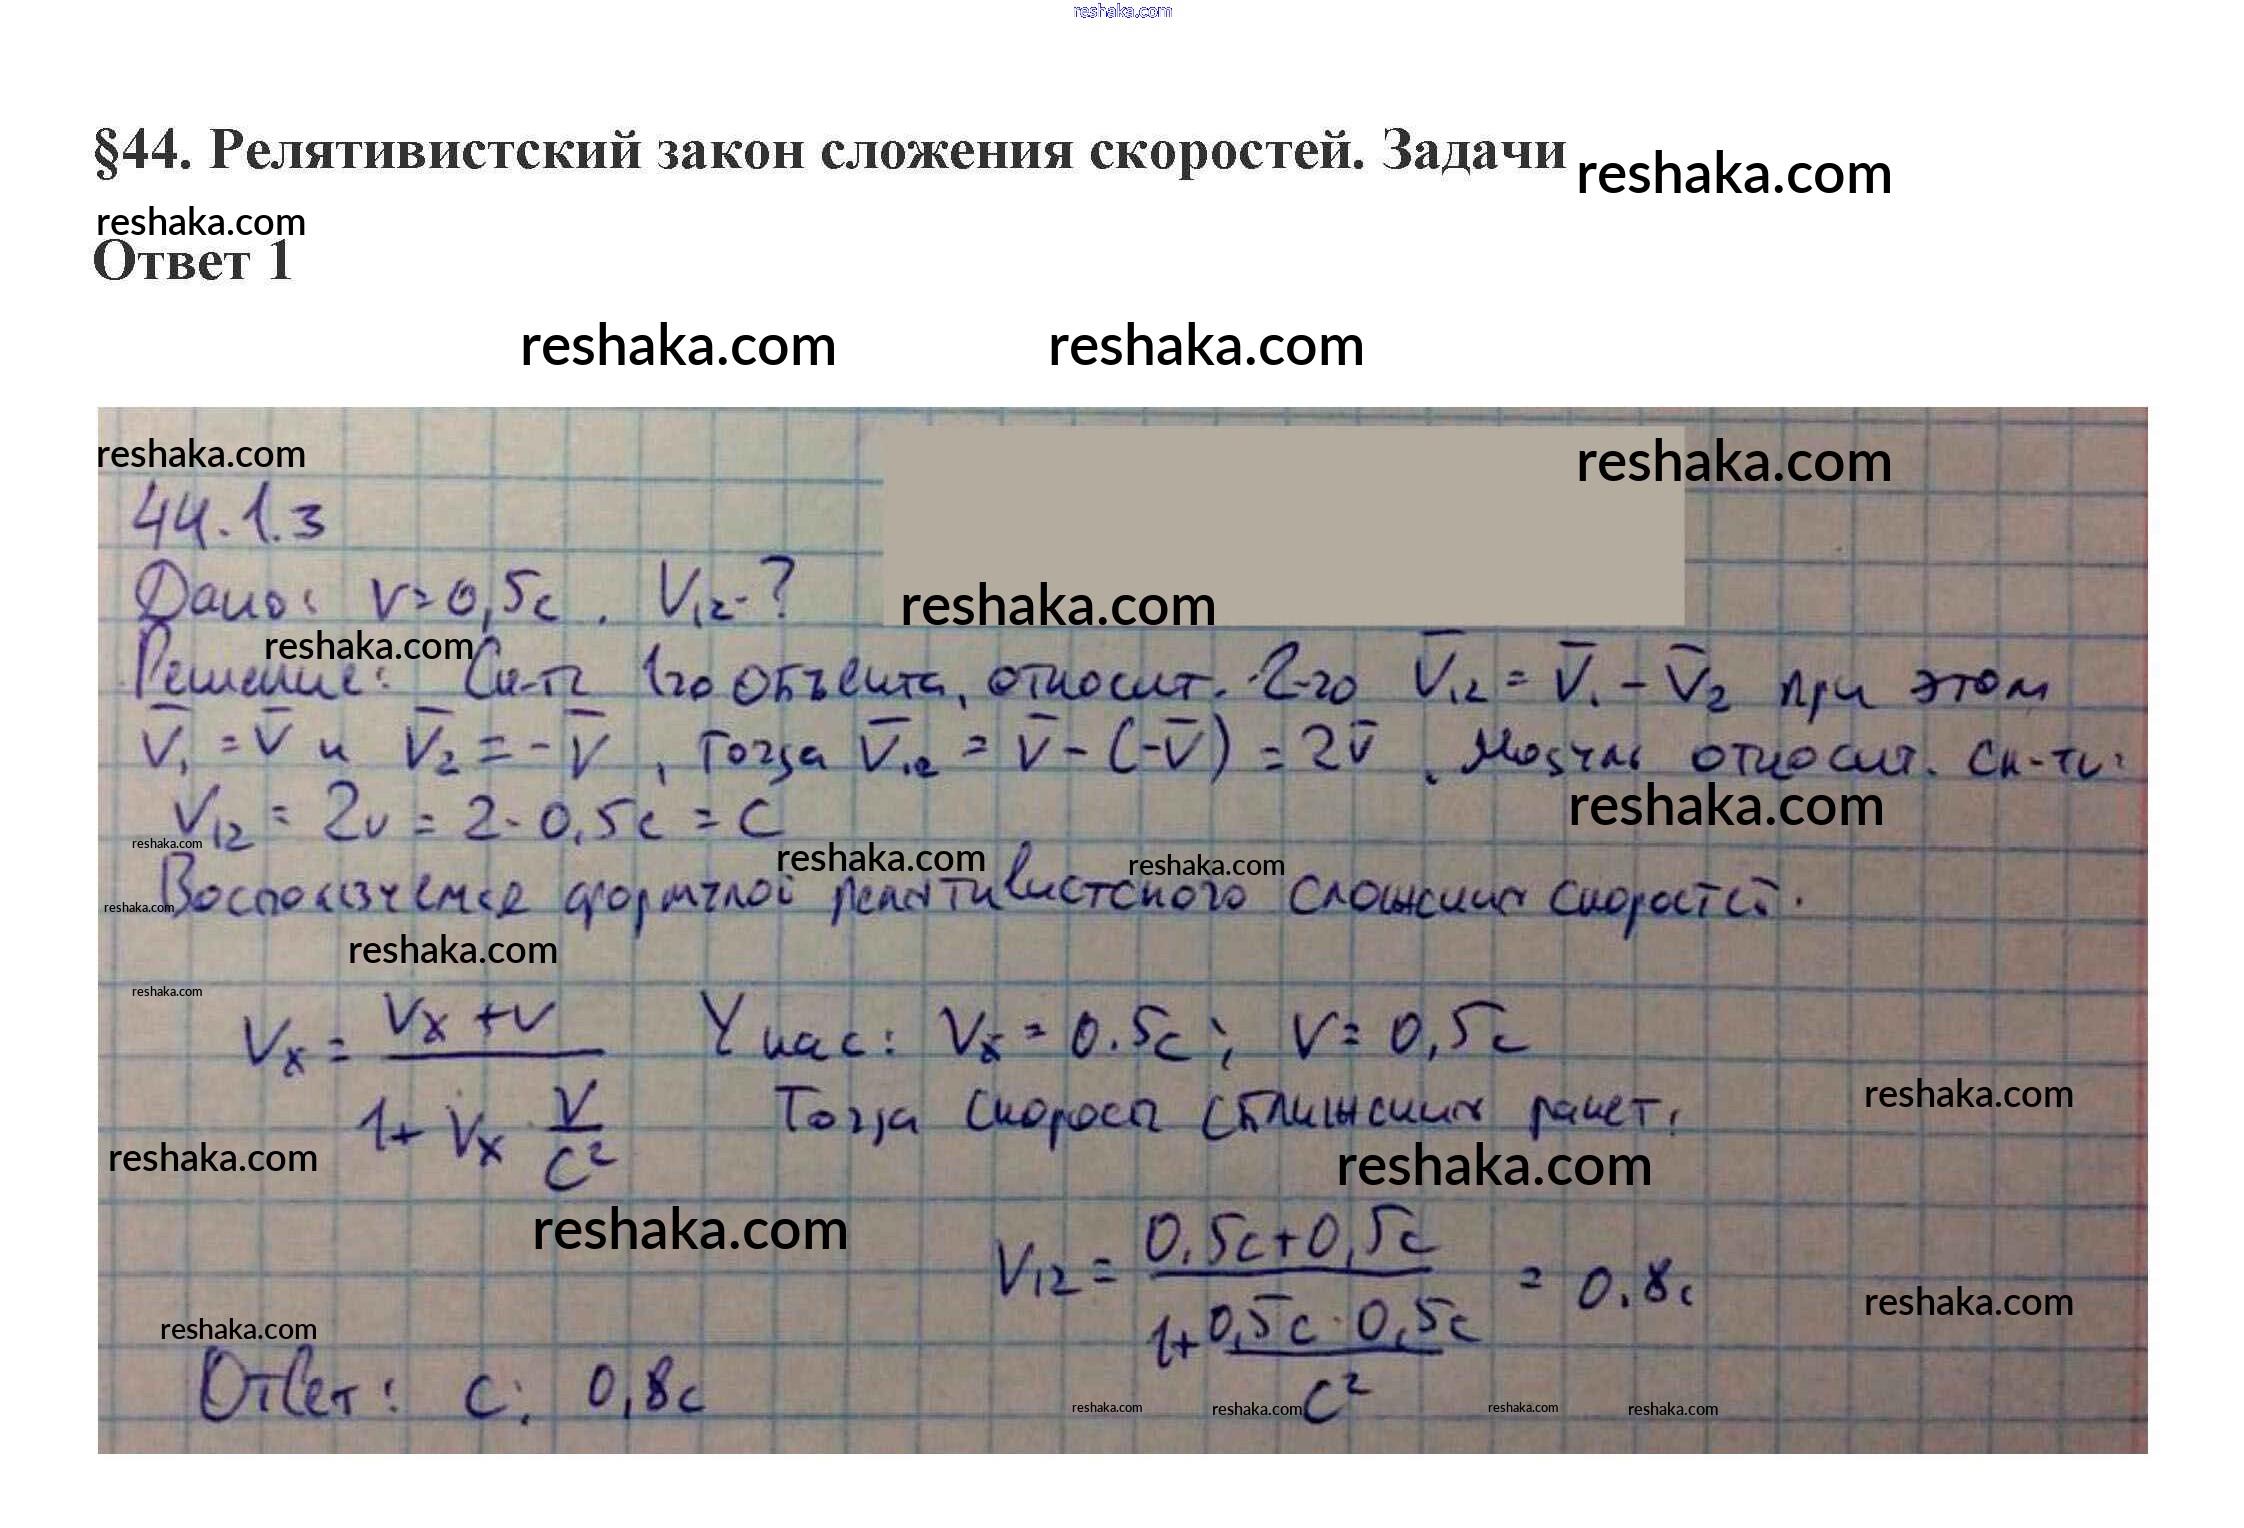 reshaka.com
§44. Релятивистский закон сложения скоростей. Задачи reshaka.com
reshaka.com
Ответ 1
reshaka.com reshaka.com
reshaka.com reshaka.com
44.1.3
Дано: v=0,5c. V₁₂-?
reshaka.com
reshaka.com
Решение: Ск-ть 1го объекта, относит. 2-го V̄₁₂ = V̄₁ - V̄₂ при этом
V̄₁ = V̄ и V̄₂ = -V̄, Тогда V̄₁₂ = V̄ - (-V̄) = 2V̄. Модуль относит. ск-ти:
reshaka.com
V₁₂ = 2v = 2·0,5c = c
reshaka.com reshaka.com reshaka.com
Воспользуемся формулой релятивистского сложения скоростей.
reshaka.com
reshaka.com
reshaka.com
Vₓ = (Vₓ+V)/(1+Vₓ·V/c²) У нас: Vₓ = 0.5c; V = 0,5c
reshaka.com
Тогда скорость сближения ракет:
reshaka.com reshaka.com
reshaka.com
V₁₂ = (0,5c+0,5c)/(1+0,5c·0,5c/c²) = 0.8c
reshaka.com
reshaka.com
Ответ: c; 0,8c
reshaka.com reshaka.com reshaka.com reshaka.com